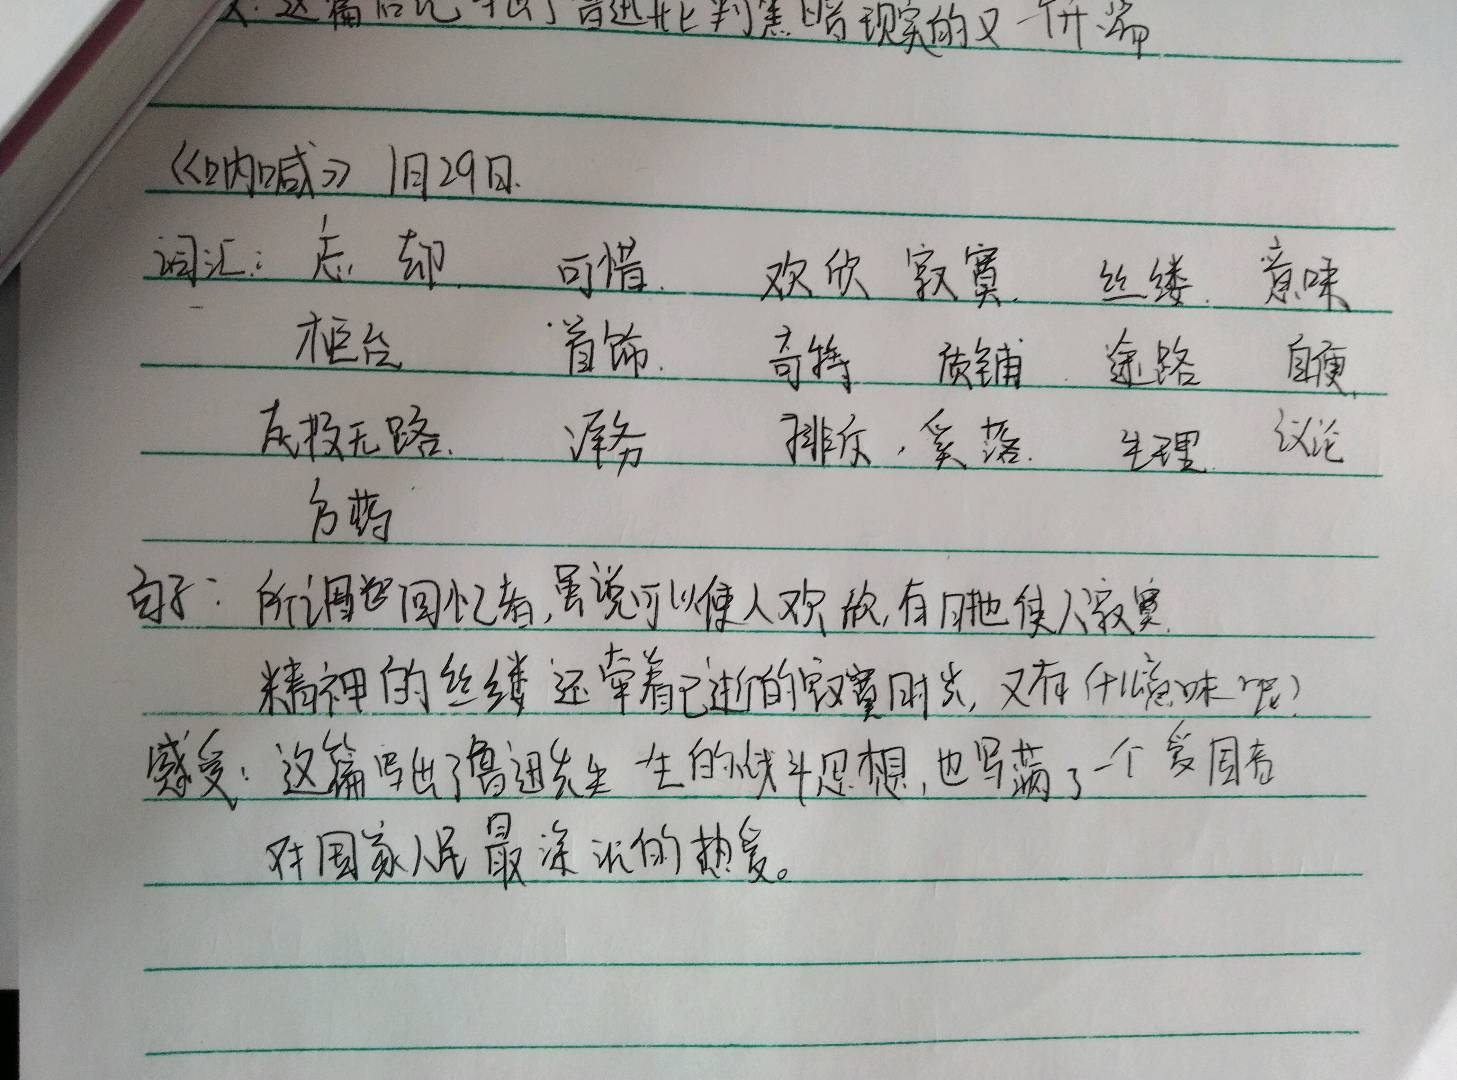 这篇后记写出了鲁迅批判黑暗现实的又一
《呐喊》 1月29日.
词汇: 忘却. 可惜. 欢欣 寂寞. 丝缕. 意味
柜台 首饰. 奇特 质铺. 途路 自便,
走投无路. 洋务 排斥, 奚落. 生理. 议论
方药
句子: 所谓回忆者,虽说可以使人欢欣,有时也使人寂寞.
精神的丝缕还牵着已逝的寂寞时光, 又有什么意味呢?
感受: 这篇写出了鲁迅先生一生的战斗思想,也写满了一个爱国者
对国家人民最深沉的热爱。